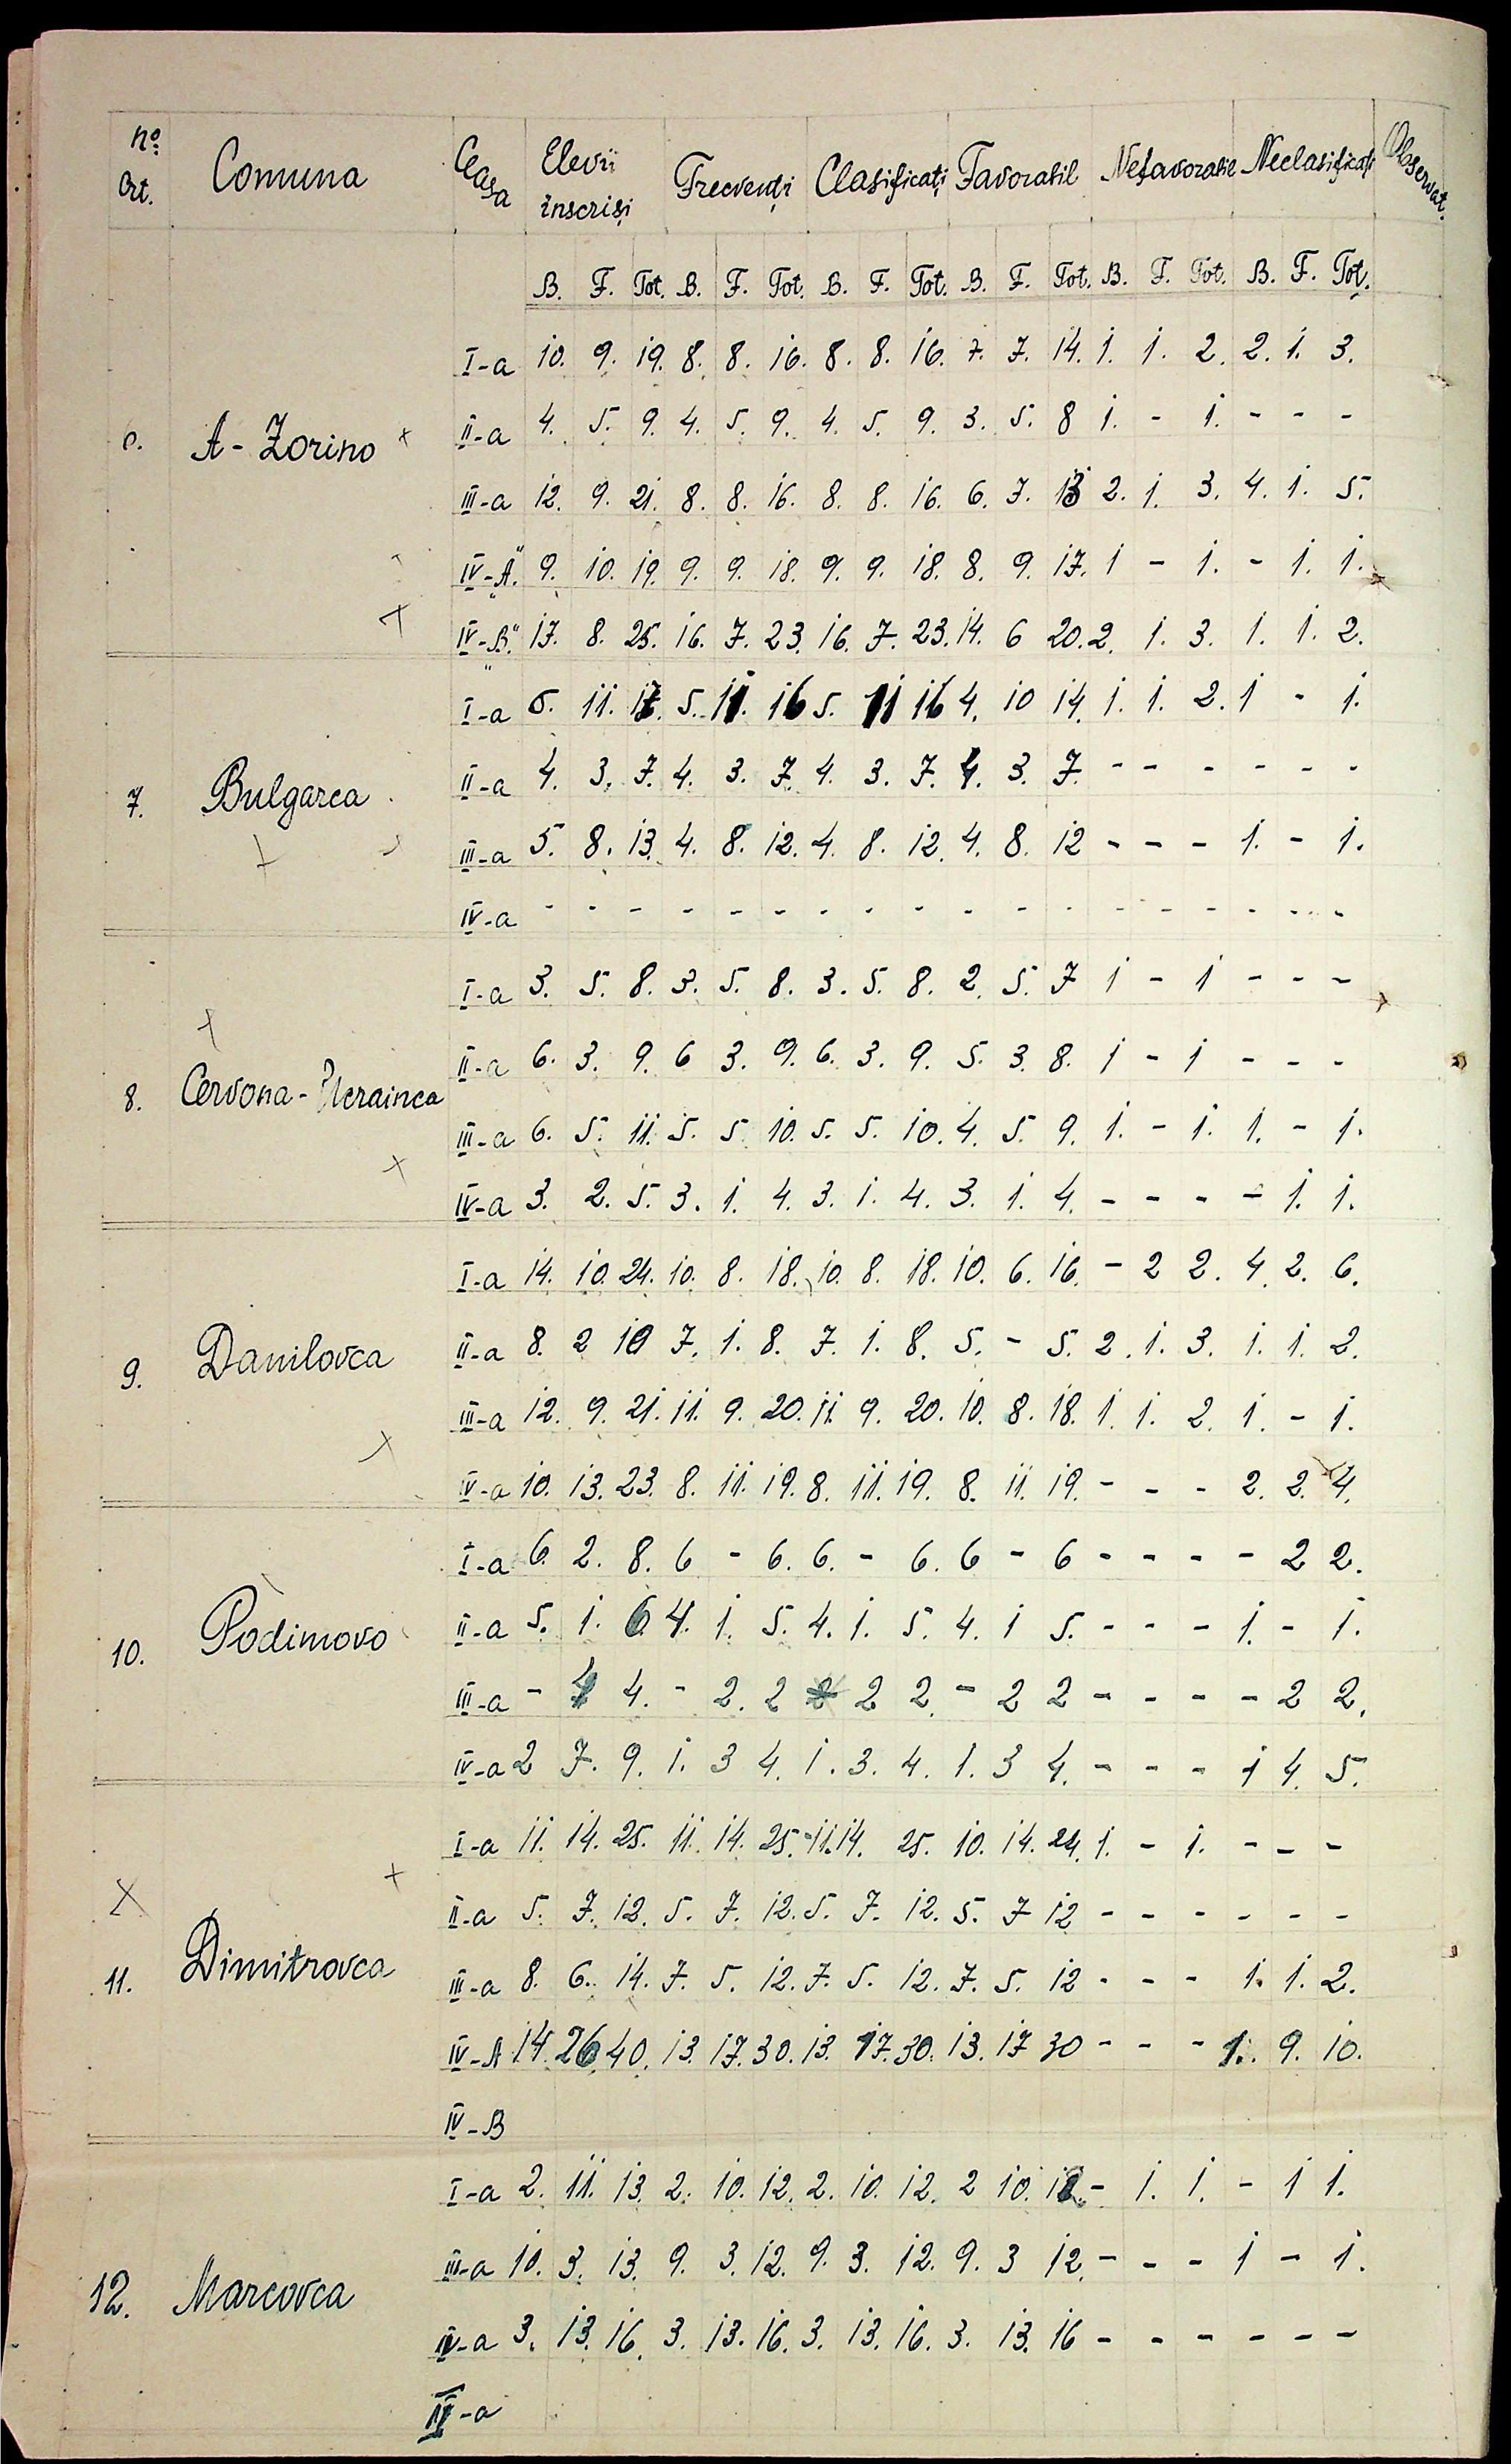 No. Crt. Comuna Clasa Elevii înscriși Frecvenți Clasificați Favorabil Nefavorabil Neclasificați Observat.
B. F. Tot. B. F. Tot. B. F. Tot. B. F. Tot. B. F. Tot. B. F. Tot.
I-a 10. 9. 19. 8. 8. 16. 8. 8. 16. 7. 7. 14. 1. 1. 2. 2. 1. 3.
A-Zorino II-a 4. 5. 9. 4. 5. 9. 4. 5. 9. 3. 5. 8 1. - 1. - - -
III-a 12. 9. 21. 8. 8. 16. 8. 8. 16. 6. 7. 13 2. 1. 3. 4. 1. 5.
IV-„A." 9. 10. 19. 9. 9. 18. 9. 9. 18. 8. 9. 17. 1 - 1. - 1. 1.
IV-„B." 17. 8. 25. 16. 7. 23. 16. 7. 23. 14. 6 20. 2. 1. 3. 1. 1. 2.
I-a 6. 11. 17. 5. 11. 16 5. 11 16 4. 10 14. 1. 1. 2. 1 - 1.
7. Bulgarca II-a 4. 3. 7. 4. 3. 7. 4. 3. 7. 4. 3. 7. - - - - - -
III-a 5. 8. 13. 4. 8. 12. 4. 8. 12. 4. 8. 12 - - - 1. - 1.
IV-a - - - - - - - - - - - - - - - - - -
I-a 3. 5. 8. 3. 5. 8. 3. 5. 8. 2. 5. 7 1 - 1 - - -
8. Cervona-Ucrainca II-a 6. 3. 9. 6 3. 9. 6. 3. 9. 5. 3. 8. 1 - 1 - - -
III-a 6. 5. 11. 5. 5 10. 5. 5. 10. 4. 5. 9. 1. - 1. 1. - 1.
IV-a 3. 2. 5. 3. 1. 4. 3. 1. 4. 3. 1. 4. - - - - 1. 1.
I-a 14. 10. 24. 10. 8. 18. 10. 8. 18. 10. 6. 16. - 2 2. 4. 2. 6.
9. Danilovca II-a 8. 2 10 7. 1. 8. 7. 1. 8. 5. - 5. 2. 1. 3. 1. 1. 2.
III-a 12. 9. 21. 11. 9. 20. 11. 9. 20. 10. 8. 18. 1. 1. 2. 1. - 1.
IV-a 10. 13. 23. 8. 11. 19. 8. 11. 19. 8. 11. 19. - - - 2. 2. 4.
I-a 6. 2. 8. 6 - 6. 6. - 6. 6 - 6 - - - - 2 2.
10. Podimovo II-a 5. 1. 6. 4. 1. 5. 4. 1. 5. 4. 1 5. - - - 1. - 1.
III-a - 4 4. - 2. 2 2 2. - 2 2 - - - - 2 2.
IV-a 2 7. 9. 1. 3 4. 1. 3. 4. 1. 3 4. - - - 1 4. 5.
I-a 11. 14. 25. 11. 14. 25. 11. 14. 25. 10. 14. 24. 1. - 1. - - -
II-a 5. 7. 12. 5. 7. 12. 5. 7. 12. 5. 7 12 - - - - - -
11. Dimitrovca III-a 8. 6. 14. 7. 5. 12. 7. 5. 12. 7. 5. 12 - - - 1. 1. 2.
IV-A 14. 26. 40. 13. 17. 30. 13. 17. 30. 13. 17 30 - - - 1. 9. 10.
IV-B
I-a 2. 11. 13. 2. 10. 12. 2. 10. 12. 2 10. - 1. 1. - 1 1.
III-a 10. 3. 13. 9. 3. 12. 9. 3. 12. 9. 3 12. - - - 1 - 1.
12. Marcovca IV-a 3. 13. 16. 3. 13. 16. 3. 13. 16. 3. 13. 16 - - - - - -